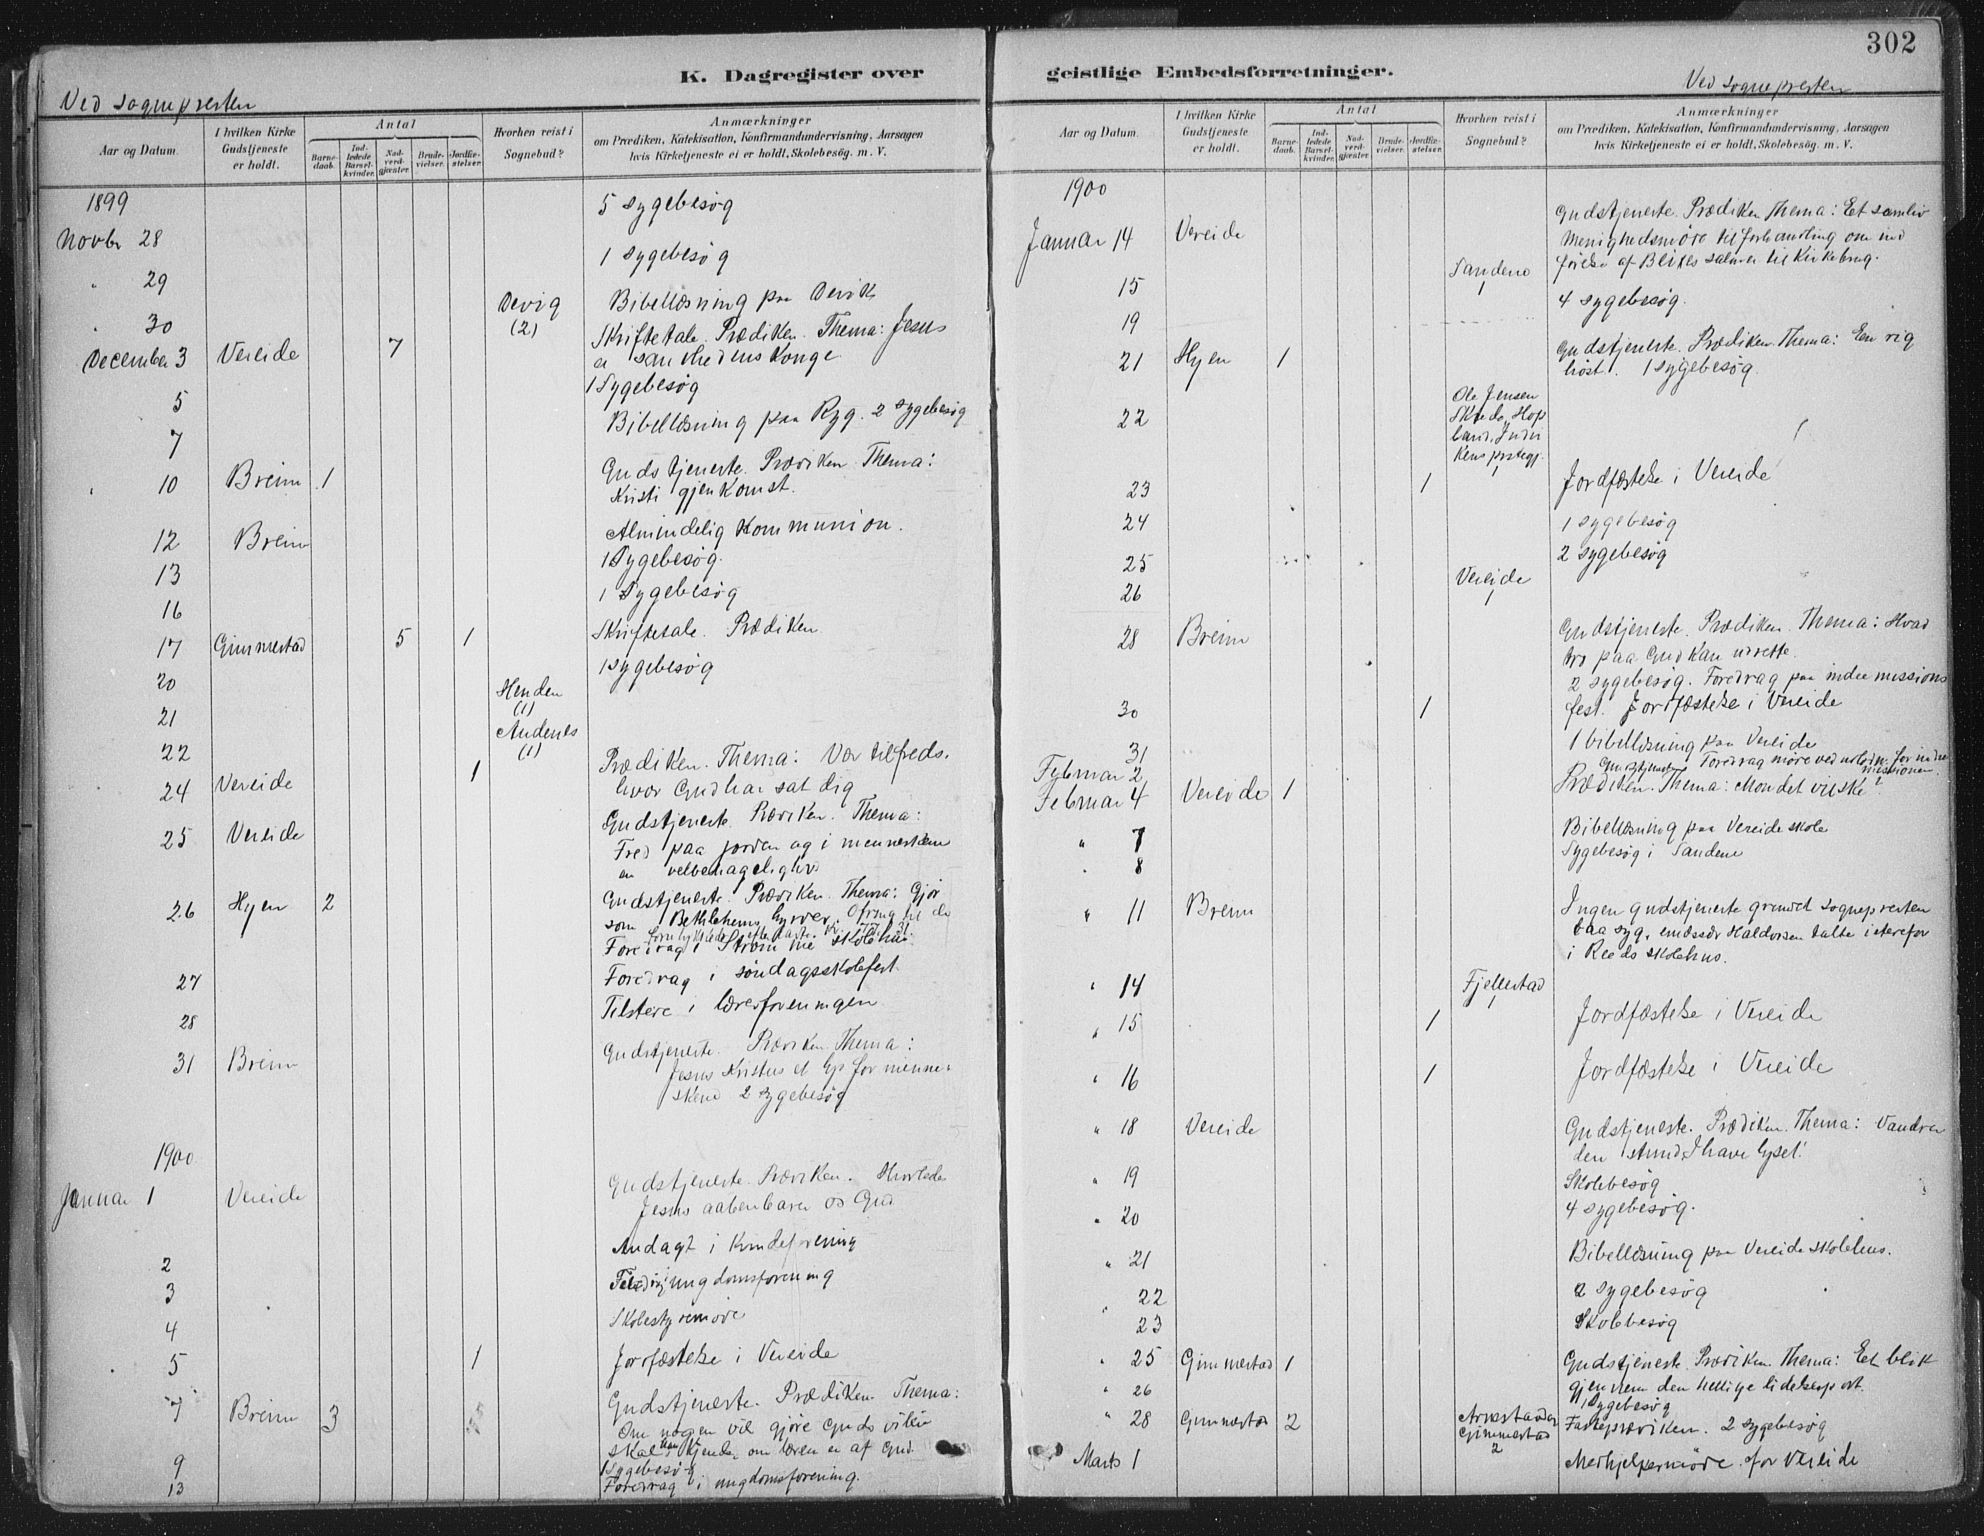 302
K. Dagregister over geistlige Embedsforretninger.
Ved sognepresten
Aar og Datum.
I hvilken Kirke Gudstjeneste er holdt.
Antal
Barne-daab.
Ind-ledede Barsel-kvinder.
Nad-verd-gjæster.
Brude-vielser.
Jordfæ-stelser.
Hvorhen reist i Sognebud?
Anmærkninger
om Prædiken, Katekisation, Konfirmandundervisning, Aarsagen
hvis Kirketjeneste ei er holdt, Skolebesøg. m. V.
1899
5 sygebesøg
Novbr 28
1 sygebesøg
" 29
Devig (2)
Bibellæsning paa Devik
" 30
Skriftetale. Prædiken. Thema: Jesus
December 3 Vereide 7
er sandhedens Konge
1 Sygebesøg
5
Bibellæsning paa Ryg. 2 sygebesøg
7
Gudstjeneste. Prædiken. Thema:
" 10 Breim 1
Kristi gjenkomst.
12 Breim
Almindelig Kommunion.
1 Sygebesøg.
13
1 Sygebesøg
16
17 Gimmestad 5 1
Skriftetale. Prædiken
1 sygebesøg
20
Henden (1)
21
Andenes (1)
22
Prædiken. Thema: Vær tilfreds,
24 Vereide 1
hvor Gud har sat dig
Gudstjeneste. Prædiken. Thema:
25 Vereide
Fred paa jorden og i menneskene
en velbehagelighed
Gudstjeneste. Prædiken. Thema: Gjør
26 Hyen 2
som Bethlehems hyrder. Ofring til de
Foredrag i Strømme skolehus
27
Foredrag i søndagsskolefest.
Tilstede i lærerforeningen
28
Gudstjeneste. Prædiken. Thema:
31 Breim
Jesus Kristus et lys for menne-
skene 2 sygebesøg
1900
Gudstjeneste. Prædiken. Hvorledes
Januar 1 Vereide
Jesus aabenbarer os Gud
Andagt i kvindeforening
2
ungdomsforening
3
Skolestyremøde
4
5 1
Jordfæstelse i Vereide
Gudstjeneste. Prædiken. Thema:
7 Breim 3
Om nogen vil gjøre Guds vilie
skal han kjende, om læren er af Gud.
9
1 Sygebesøg
13
Foredrag i ungdomsforening.
Ved sognepresten
Aar og Datum.
I hvilken Kirke Gudstjeneste er holdt.
Antal
Barne-daab.
Ind-ledede Barsel-kvinder.
Nad-verd-gjæster.
Brude-vielser.
Jordfæ-stelser.
Hvorhen reist i Sognebud?
Anmærkninger
om Prædiken, Katekisation, Konfirmandundervisning, Aarsagen
hvis Kirketjeneste ei er holdt, Skolebesøg. m. V.
1900
Gudstjeneste. Prædiken Thema: Et samliv
Januar 14 Vereide
Menighedsmøde til forhandling om ind
førelse af Blixes salmer til Kirkebrug.
15
Sandene 1
4 sygebesøg.
19
Gudstjeneste. Prædiken. Thema: En rig
21 Hyen 1
høst. 1 sygebesøg.
22
Ole Jensen
23 1
Jordfæstelse i Vereide
24
1 sygebesøg
25
2 sygebesøg
26
Vereide 1
Gudstjeneste. Prædiken. Thema: Hvad
28 Breim
tro paa Gud kan udrette.
2 sygebesøg. Foredrag paa indremissions
fest.
30 1
Jordfæstelse i Vereide
31
1 bibellæsning paa Vereide
Februar 2
Foredrag møde for indre missionen.
Februar 4 Vereide 1
Gudstjeneste Prædiken. Thema: Mon det virske?
" 7
Bibellæsning paa Vereide skole
" 8
Sygebesøg i Sandene
" 11 Breim
Ingen gudstjeneste grundet sognepresten
laa syg, emissær Haldorsen talte istedefor
i Reeds skolehus.
" 14
Fjellestad 1
" 15 1
Jordfæstelse i Vereide
" 16 1
Jordfæstelse i Vereide
" 18 Vereide
Gudstjeneste. Prædiken. Thema: Vandrer
den stund I have lyset!
" 19
Skolebesøg
" 20
4 sygebesøg.
" 21
Bibellæsning paa Vereide skolehus.
" 22
2 sygebesøg
23
Skolebesøg
" 25 Gimmestad 1
Gudstjeneste. Prædiken. Thema: Et blik
gjennem den hellige lidelsesport.
" 26
1 Sygebesøg
" 28 Gimmestad 2
Gimmestad 2
Fasteprædiken. 2 sygebesøg
Marts 1
Medhjelpermøde for Vereide